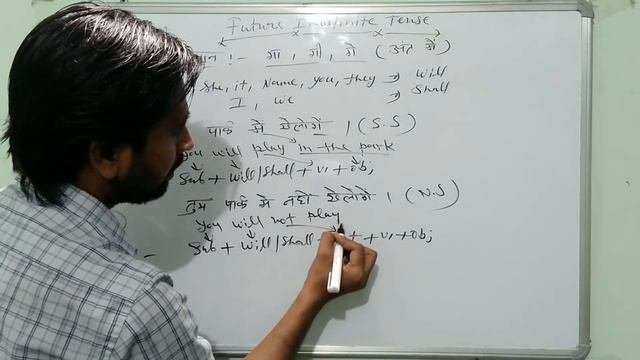 Future Indefinite Tense
गा, गी, गे (अंत में)
She, it, Name, you, they → will
I, we → Shall
पार्क में खेलोगे । (S.S)
You will play in the park
Sub + will/shall + v₁ + obj
तुम पार्क में नहीं खेलोगे । (N.S)
You will not play
Sub + will/shall + + v₁ + obj